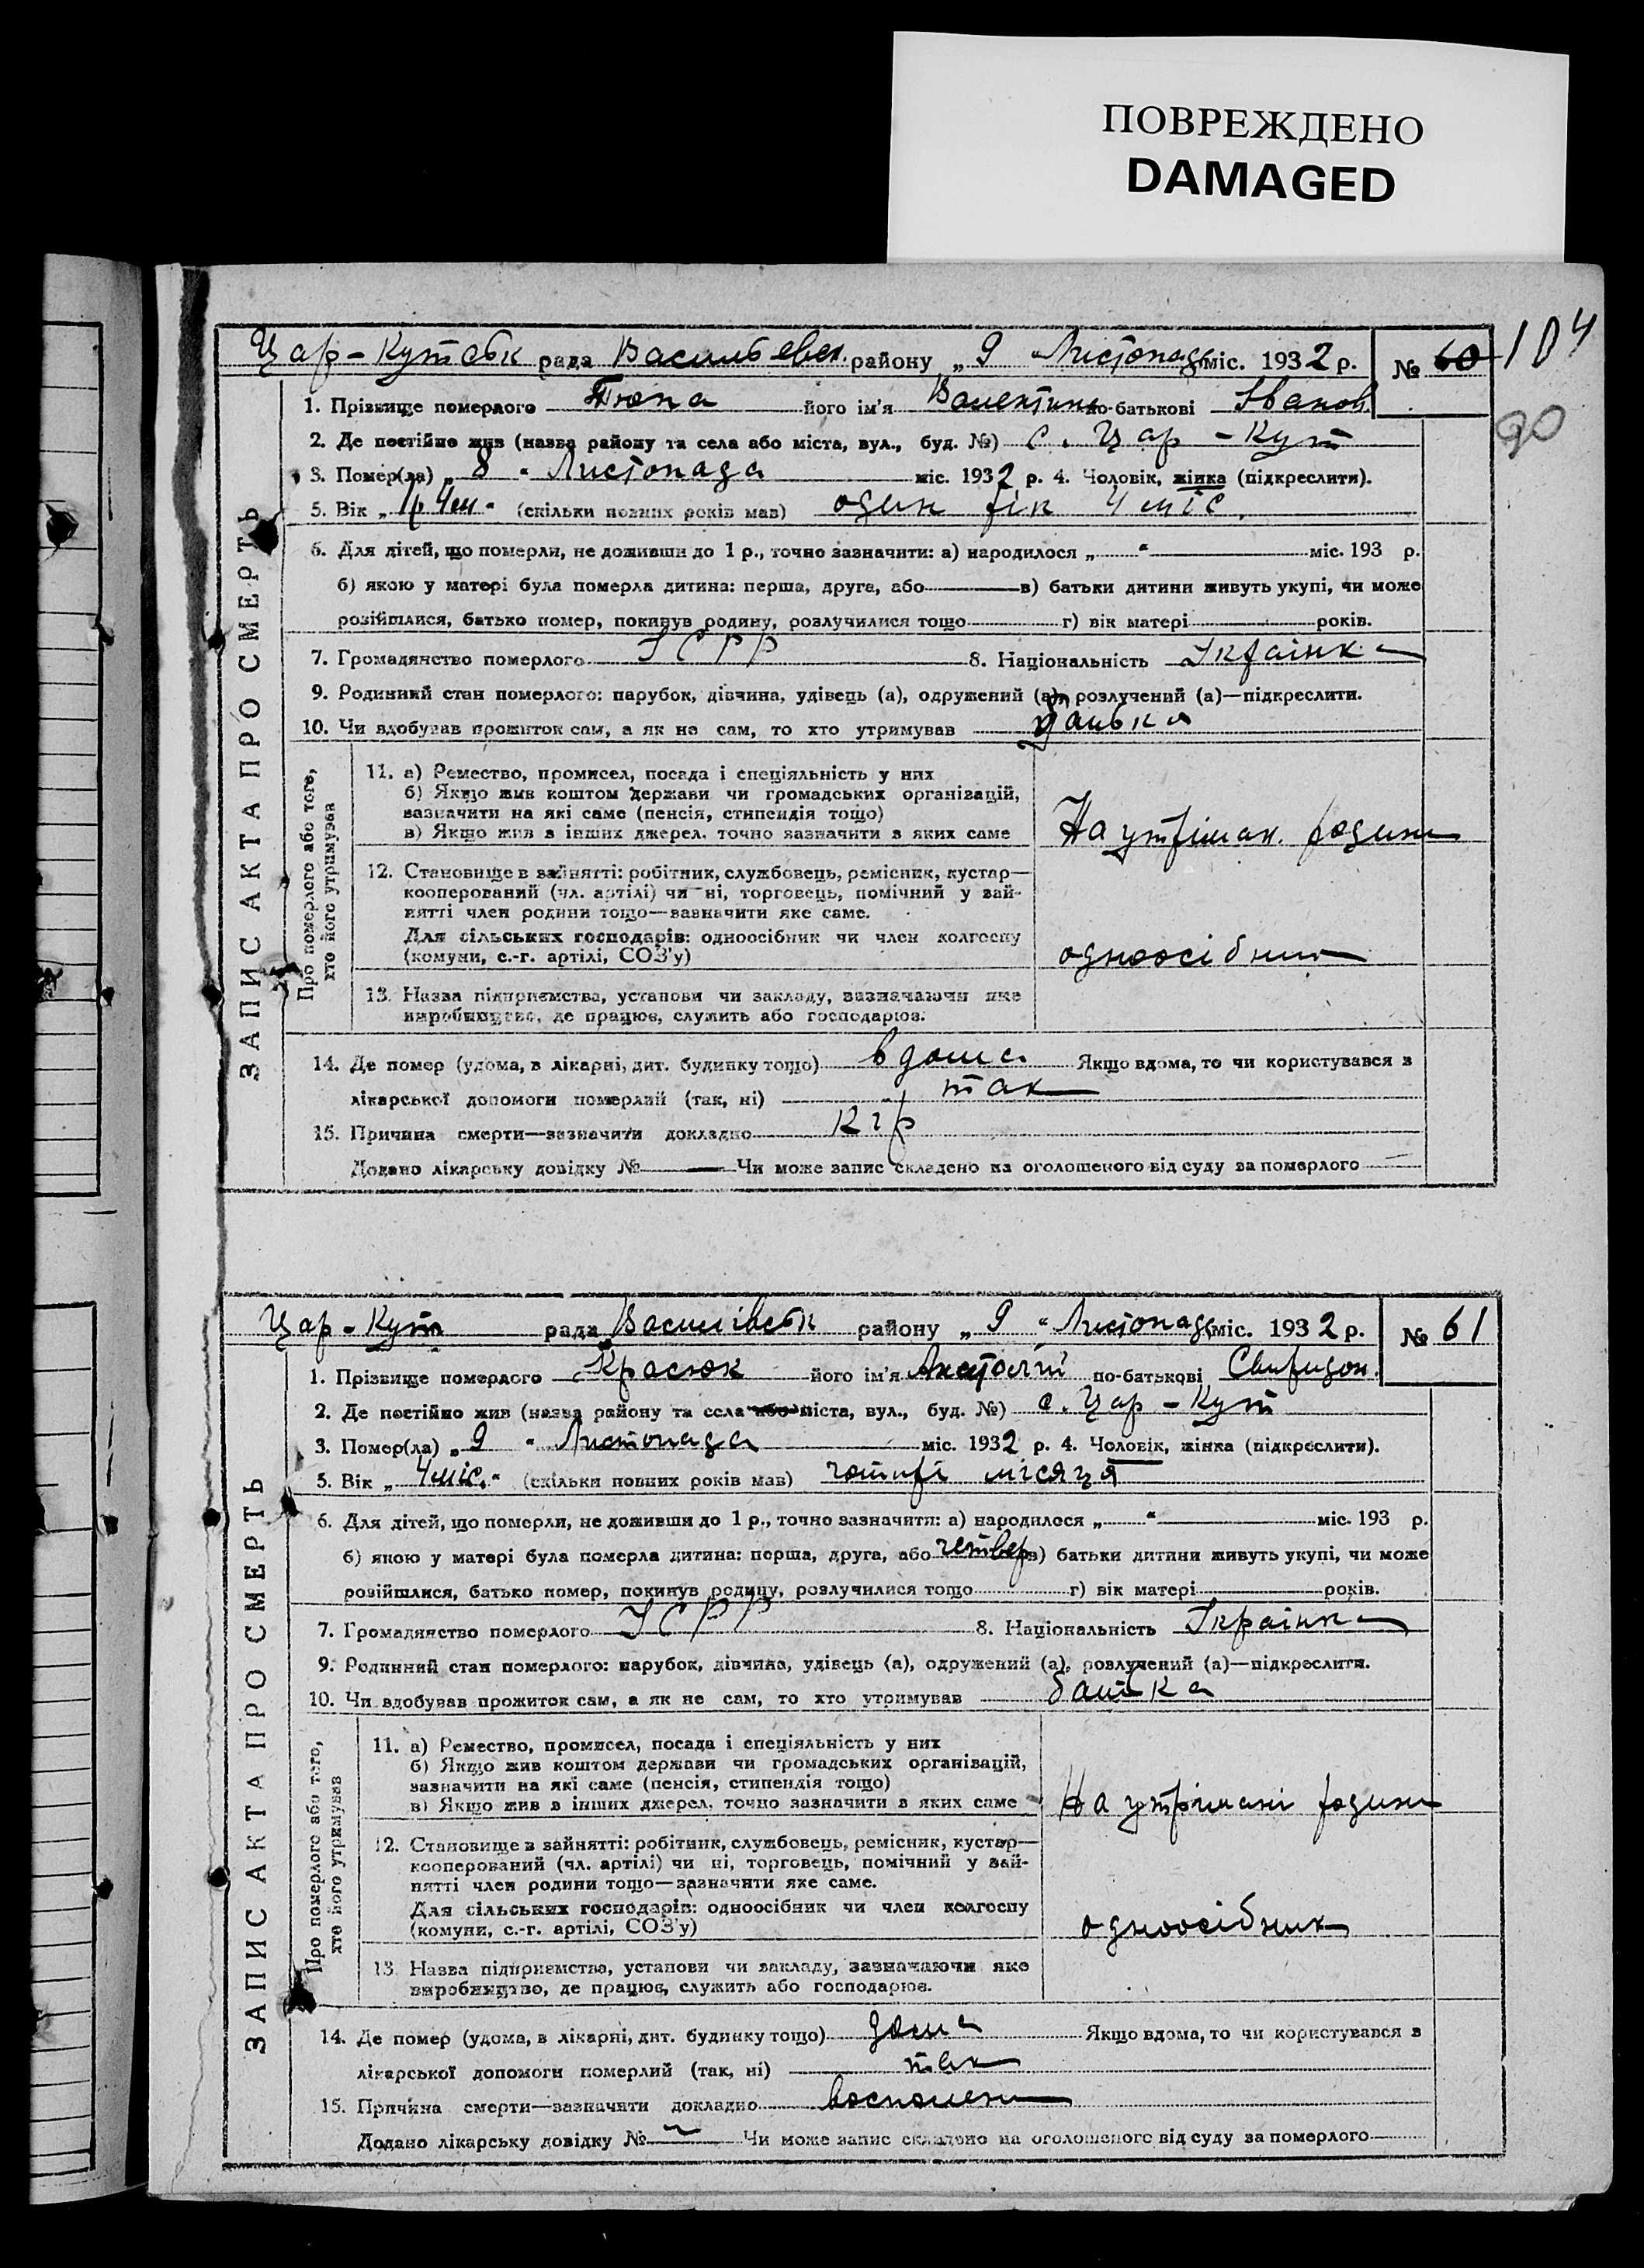 ПОВРЕЖДЕНО
DAMAGED
104
90
ЗАПИС АКТА ПРО СМЕРТЬ
Цар-Кутськ рада Васильевск. району „ 9 “ Листопада міс. 1932 р. № 60
1. Прізвище померлого Тюпа його ім'я Валентина по-батькові Іванов.
2. Де постійно жив (назва району та села або міста, вул., буд. №) с. Цар-Кут
3. Помер(ла) „ 8 “ Листопада міс. 1932 р. 4. Чоловік, жінка (підкреслити).
5. Вік „ 1р 4м “ (скільки повних років мав) один рік 4 міс.
6. Для дітей, що померли, не доживши до 1 р., точно зазначити: а) народилося „ “ міс. 193 р.
б) якою у матері була померла дитина: перша, друга, або — в) батьки дитини живуть укупі, чи може
розійшлися, батько помер, покинув родину, розлучилися тощо г) вік матері років.
7. Громадянство померлого УСРР 8. Національність Українка
9. Родинний стан померлого: парубок, дівчина, удівець (а), одружений (а), розлучений (а)—підкреслити.
10. Чи вдобував прожиток сам, а як не сам, то хто утримував
Про померлого або того,
хто його утримував
11. а) Ремество, промисел, посада і спеціяльність у них
б) Якщо жив коштом держави чи громадських організацій,
зазначити на які саме (пенсія, стипендія тощо)
в) Якщо жив з інших джерел, точно зазначити з яких саме
На утріман. родини
12. Становище в зайнятті: робітник, службовець, ремісник, кустар—
кооперований (чл. артілі) чи ні, торговець, помічний у зай-
нятті член родини тощо—зазначити яке саме.
Для сільських господарів: одноосібник чи член колгоспу
(комуни, с.-г. артілі, СОЗ'у)
одноосібник
13. Назва підприємства, установи чи закладу, зазначаючи яке
виробництво, де працює, служить або господарює.
14. Де помер (удома, в лікарні, дит. будинку тощо) вдома Якщо вдома, то чи користувався з
лікарської допомоги померлий (так, ні) так
15. Причина смерти—зазначити докладно Кір
Додано лікарську довідку № — Чи може запис складено на оголошеного від суду за померлого —
ЗАПИС АКТА ПРО СМЕРТЬ
Цар-Кут рада Василівськ району „ 9 “ Листопада міс. 1932 р. № 61
1. Прізвище померлого Красюк його ім'я Анатолій по-батькові Свиридон.
2. Де постійно жив (назва району та села або міста, вул., буд. №) с. Цар-Кут
3. Помер(ла) „ 9 “ Листопада міс. 1932 р. 4. Чоловік, жінка (підкреслити).
5. Вік „ 4міс. “ (скільки повних років мав) чотирі місяця
6. Для дітей, що померли, не доживши до 1 р., точно зазначити: а) народилося „ “ міс. 193 р.
б) якою у матері була померла дитина: перша, друга, або четвер в) батьки дитини живуть укупі, чи може
розійшлися, батько помер, покинув родину, розлучилися тощо г) вік матері років.
7. Громадянство померлого УСРР 8. Національність Українка
9. Родинний стан померлого: парубок, дівчина, удівець (а), одружений (а), розлучений (а)—підкреслити.
10. Чи вдобував прожиток сам, а як не сам, то хто утримував батька
Про померлого або того,
хто його утримував
11. а) Ремество, промисел, посада і спеціяльність у них
б) Якщо жив коштом держави чи громадських організацій,
зазначити на які саме (пенсія, стипендія тощо)
в) Якщо жив з інших джерел, точно зазначити з яких саме
На утримані родини
12. Становище в зайнятті: робітник, службовець, ремісник, кустар—
кооперований (чл. артілі) чи ні, торговець, помічний у зай-
нятті член родини тощо—зазначити яке саме.
Для сільських господарів: одноосібник чи член колгоспу
(комуни, с.-г. артілі, СОЗ'у)
одноосібник
13. Назва підприємства, установи чи закладу, зазначаючи яке
виробництво, де працює, служить або господарює.
14. Де помер (удома, в лікарні, дит. будинку тощо) дома Якщо вдома, то чи користувався з
лікарської допомоги померлий (так, ні) так
15. Причина смерти—зазначити докладно воспомени
Додано лікарську довідку № — Чи може запис складено на оголошеного від суду за померлого